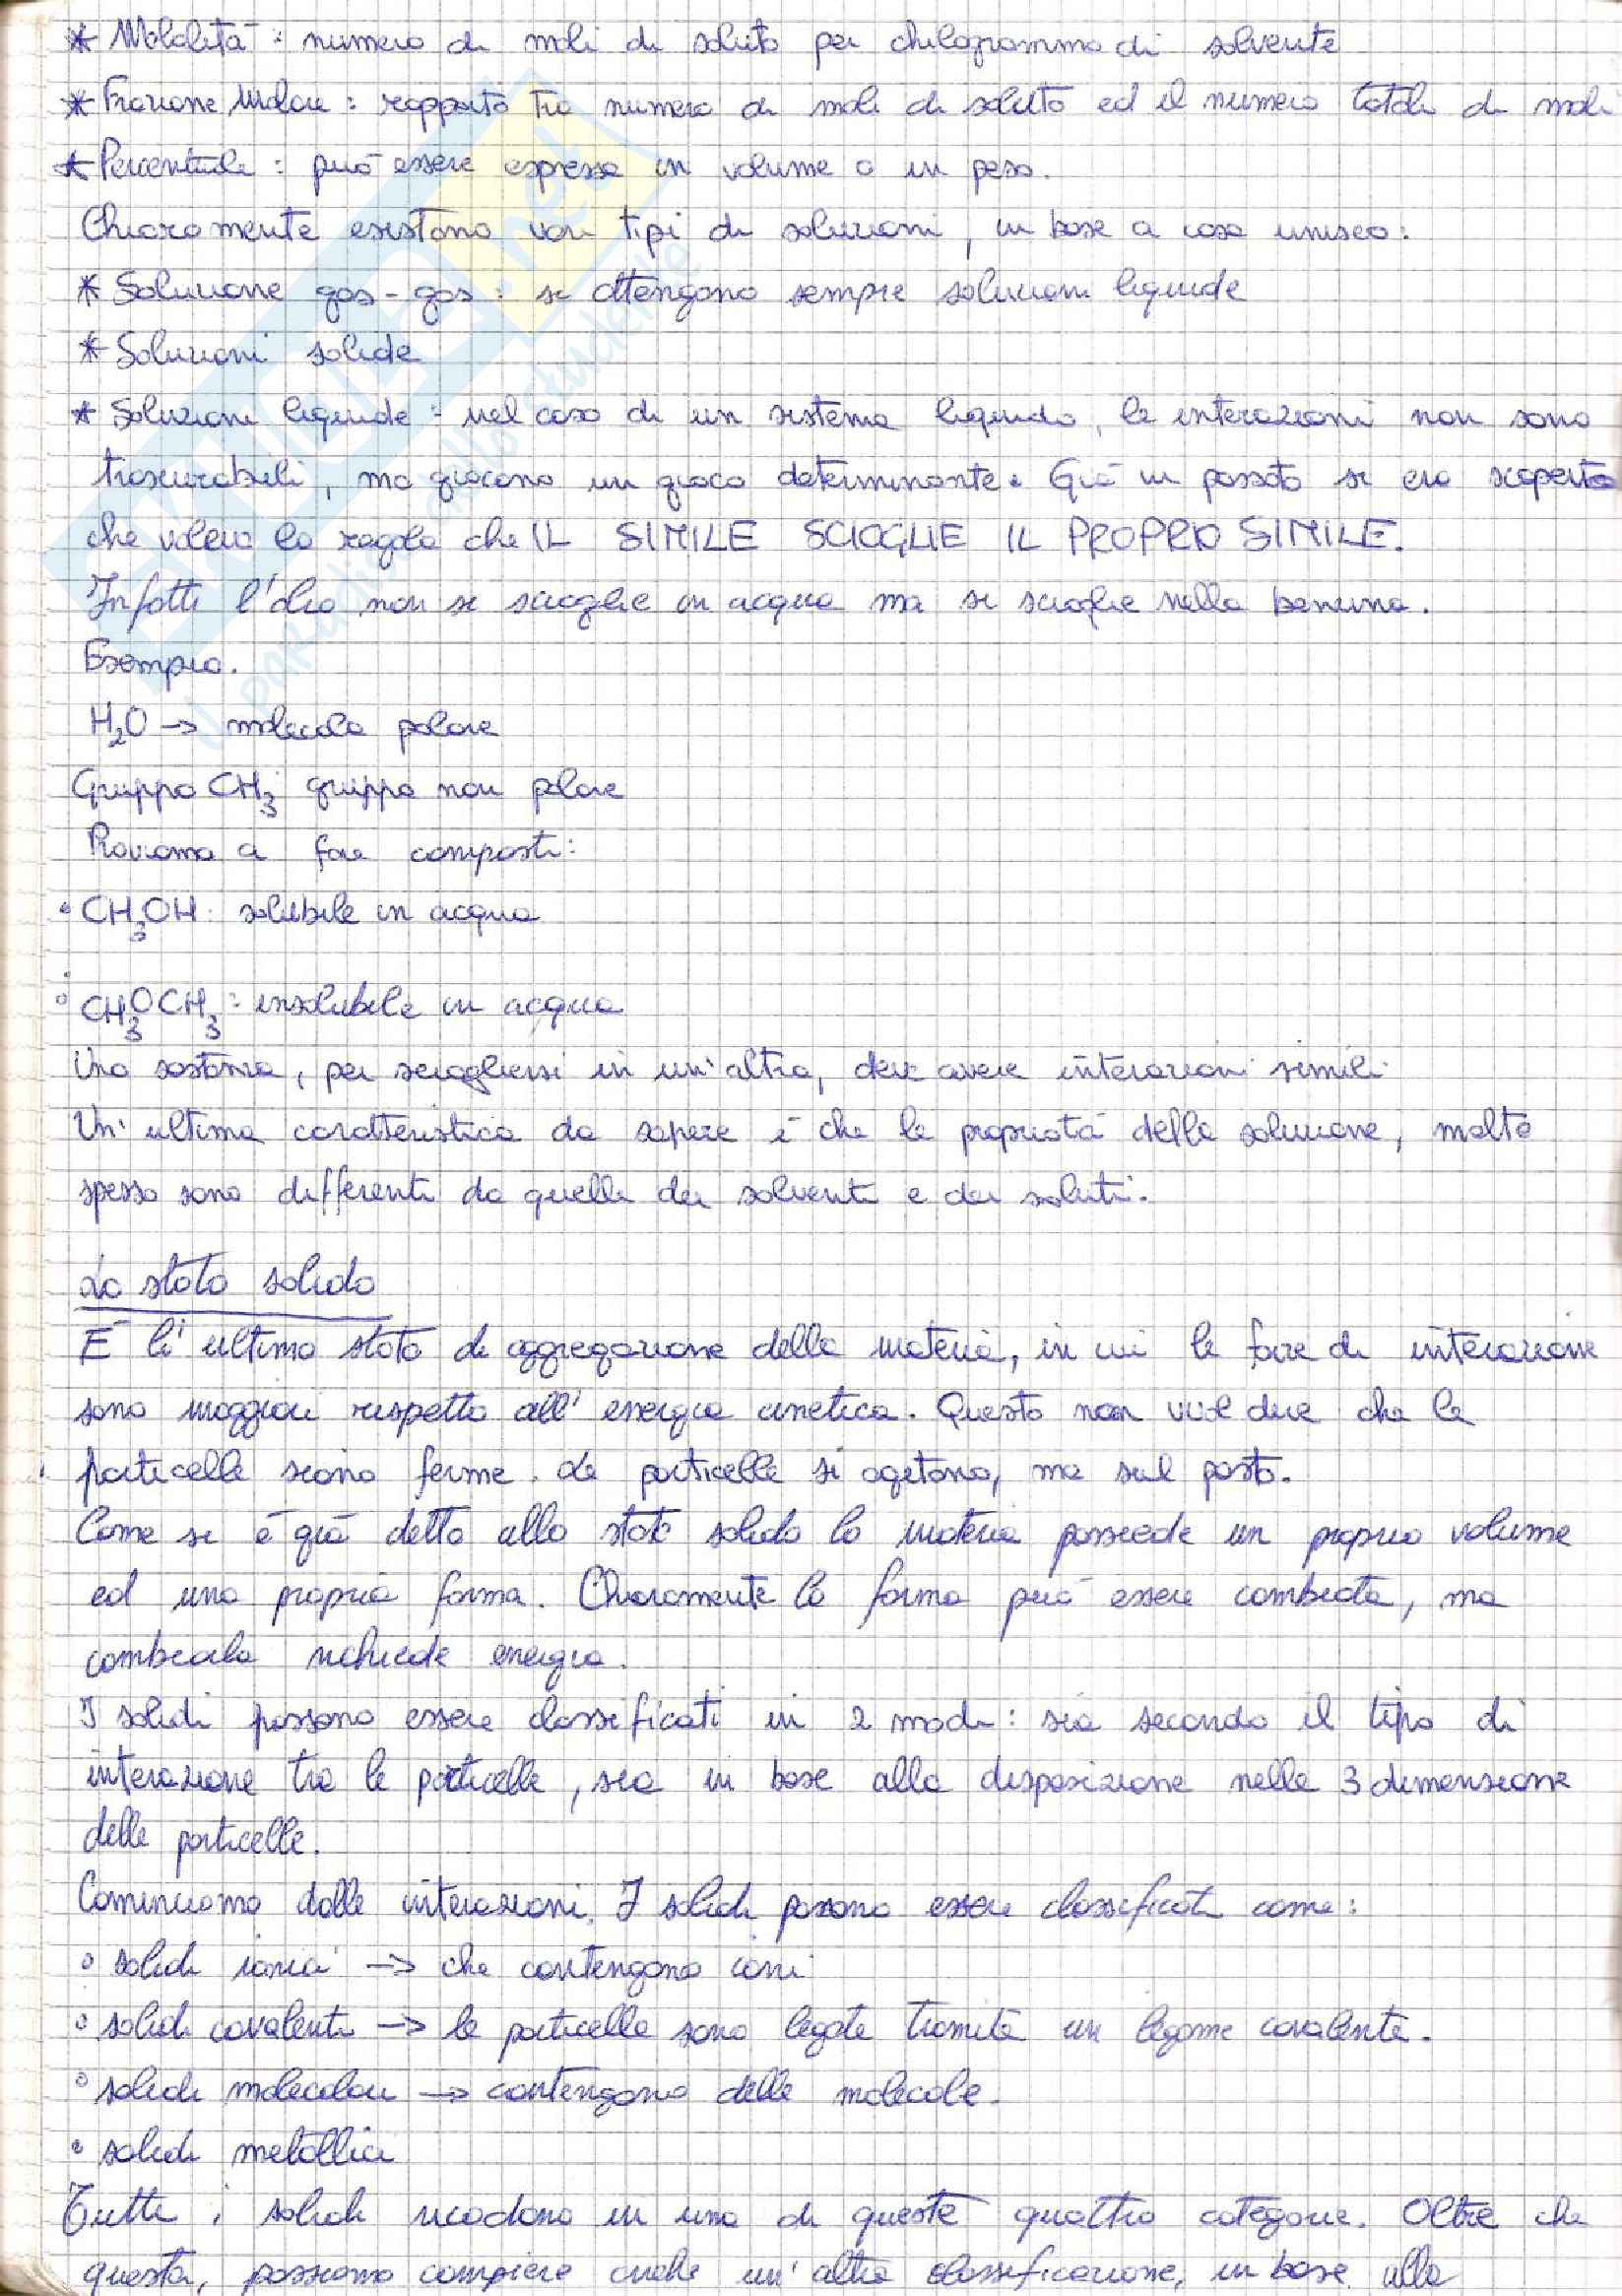 * Molalità: numero di moli di soluto per chilogrammo di solvente
* Frazione Molare: rapporto tra numero di moli di soluto ed il numero totale di moli
* Percentuale: può essere espressa in volume o in peso.
Chiaramente esistono vari tipi di soluzioni, in base a cosa unisco:
* Soluzione gas-gas: si ottengono sempre soluzioni liquide
* Soluzioni solide
* Soluzioni liquide: nel caso di un sistema liquido, le interazioni non sono
trascurabili, ma giocano un gioco determinante. Già in passato si era scoperto
che valeva la regola che IL SIMILE SCIOGLIE IL PROPRIO SIMILE.
Infatti l'olio non si scioglie in acqua ma si scioglie nella benzina.
Esempio.
H₂O → molecola polare
Gruppo CH₃ gruppo non polare
Proviamo a fare composti:
• CH₃OH: solubile in acqua
° CH₃OCH₃: insolubile in acqua
Una sostanza, per sciogliersi in un'altra, deve avere interazioni simili
Un'ultima caratteristica da sapere è che le proprietà della soluzione, molto
spesso sono differenti da quelle dei solventi e dei soluti.
Lo stato solido
È l'ultimo stato di aggregazione della materia, in cui le forze di interazione
sono maggiori rispetto all'energia cinetica. Questo non vuol dire che le
particelle siano ferme. Le particelle si agitano, ma sul posto.
Come si è già detto allo stato solido la materia possiede un proprio volume
ed una propria forma. Chiaramente la forma può essere cambiata, ma
cambiarla richiede energia.
I solidi possono essere classificati in 2 modi: sia secondo il tipo di
interazione tra le particelle, sia in base alla disposizione nelle 3 dimensione
delle particelle.
Cominciamo dalle interazioni. I solidi possono essere classificati come:
° solidi ionici → che contengono ioni
° solidi covalenti → le particelle sono legate tramite un legame covalente.
° solidi molecolari → contengono delle molecole.
• solidi metallici
Tutti i solidi ricadono in una di queste quattro categorie. Oltre che
questa, possiamo compiere anche un'altra classificazione, in base alla